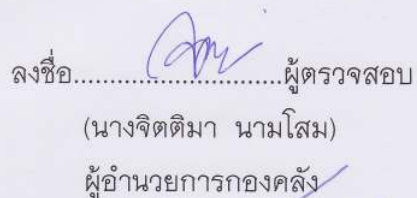 ลงชื่อ..............................ผู้ตรวจสอบ
(นางจิตติมา นามโสม)
ผู้อำนวยการกองคลัง